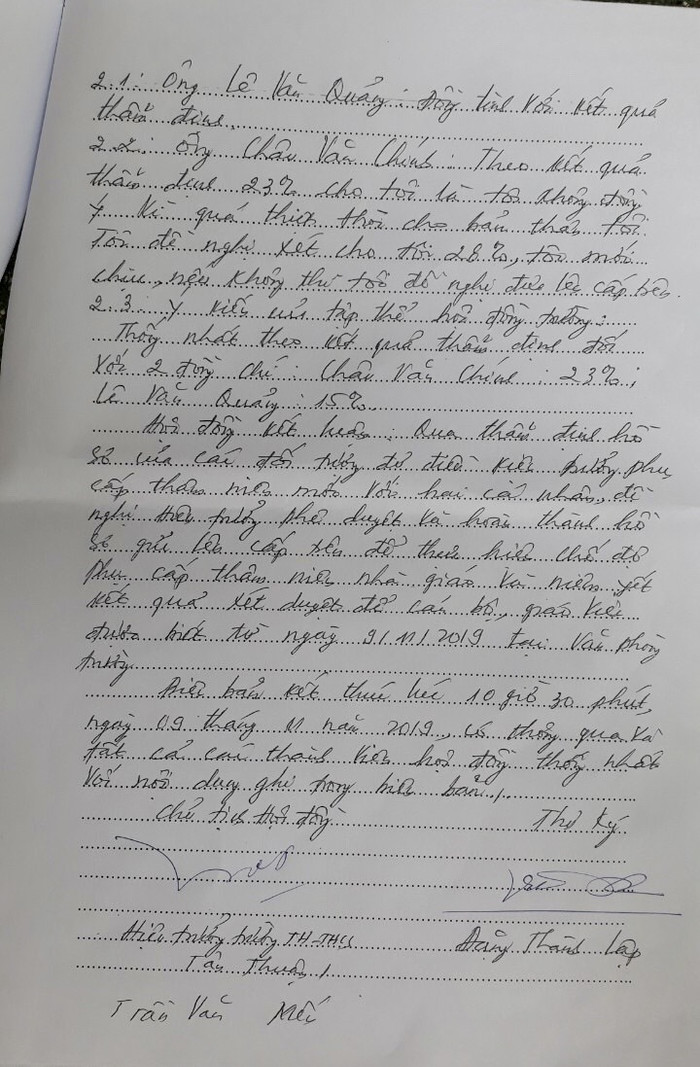 2.1: Ông Lê Văn Quảng: Đồng tình với kết quả
thẩm định.
2.2: Ông Châu Văn Chính: Theo kết quả
thẩm định 23% cho tôi là tôi không đồng
ý. Vì quá thiệt thòi cho bản thân tôi.
Tôi đề nghị xét cho tôi 28%, tôi mới
chịu, nếu không thì tôi đề nghị đưa lên cấp trên.
2.3. Ý kiến của tập thể hội đồng trường:
Thống nhất theo kết quả thẩm định đối
với 2 đồng chí: Châu Văn Chính: 23%;
Lê Văn Quảng: 15%.
Hội đồng kết luận: Qua thẩm định hồ
sơ của các đối tượng đủ điều kiện hưởng phụ
cấp thâm niên mới với hai cá nhân, đề
nghị hiệu trưởng phê duyệt và hoàn thành hồ
sơ gửi lên cấp trên để thực hiện chế độ
phụ cấp thâm niên nhà giáo và niêm yết
kết quả xét duyệt để cán bộ, giáo viên
được biết từ ngày 9/11/2019 tại văn phòng
trường.
Biên bản kết thúc lúc 10 giờ 30 phút,
ngày 09 tháng 11 năm 2019, có thông qua và
tất cả các thành viên hội đồng thống nhất
với nội dung ghi trong biên bản./.
Chủ tịch Hội đồng Thư ký
Hiệu trưởng trường TH-THCS Đặng Thành Lập
Tân Thuận 1
Trần Văn